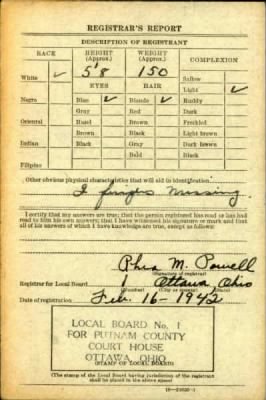 REGISTRAR'S REPORT
DESCRIPTION OF REGISTRANT
RACE HEIGHT (Approx.) WEIGHT (Approx.) COMPLEXION
White ✓ 5'8 150 Sallow
EYES HAIR Light ✓
Negro Blue ✓ Blonde ✓ Ruddy
Gray Red Dark
Oriental Hazel Brown Freckled
Brown Black Light brown
Indian Black Gray Dark brown
Bald Black
Filipino
Other obvious physical characteristics that will aid in identification
I certify that my answers are true; that the person registered has read or has had
read to him his own answers; that I have witnessed his signature or mark and that
all of his answers of which I have knowledge are true, except as follows:
M. Powell
(Signature of registrar)
Registrar for Local Board Ottawa, Ohio
Date of registration Feb. 16-1942
LOCAL BOARD No. 1
FOR PUTNAM COUNTY
COURT HOUSE
OTTAWA, OHIO
(STAMP OF LOCAL BOARD)
(The stamp of the Local Board having jurisdiction of the registrant
shall be placed in the above space.)